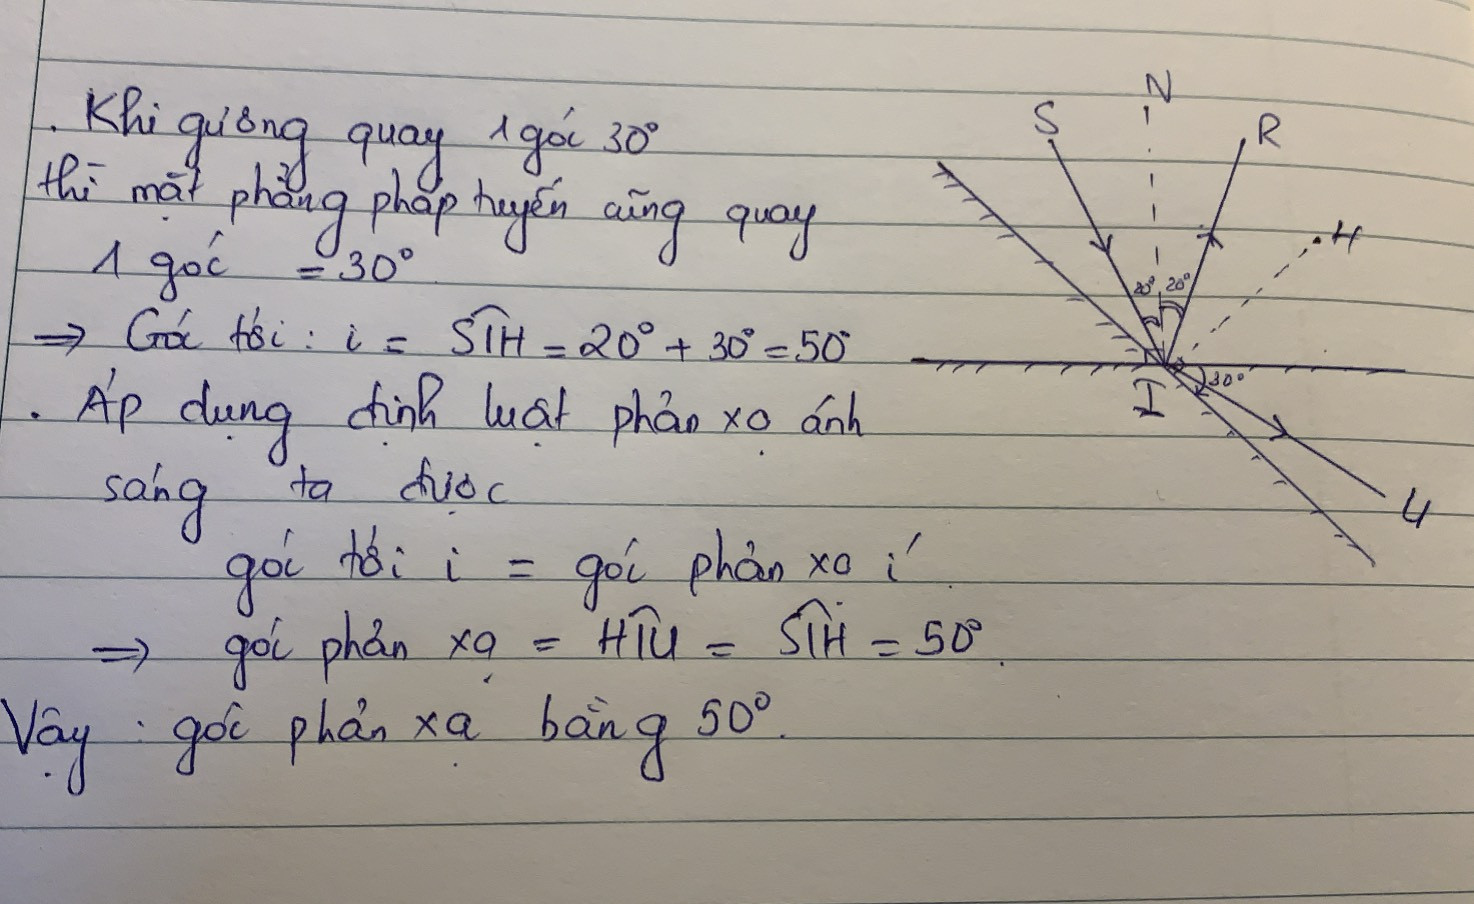 . Khi gương quay 1 góc 30°
thì mặt phẳng pháp tuyến cũng quay
1 góc = 30°
⇒ Góc tới : i = SIH = 20° + 30° = 50°
. Áp dụng định luật phản xạ ánh
sáng ta được
góc tới i = góc phản xạ i'
⇒ góc phản xạ = HIU = SIH = 50°.
Vậy : góc phản xạ bằng 50°.
N
S
R
H
20° 20°
30°
I
U